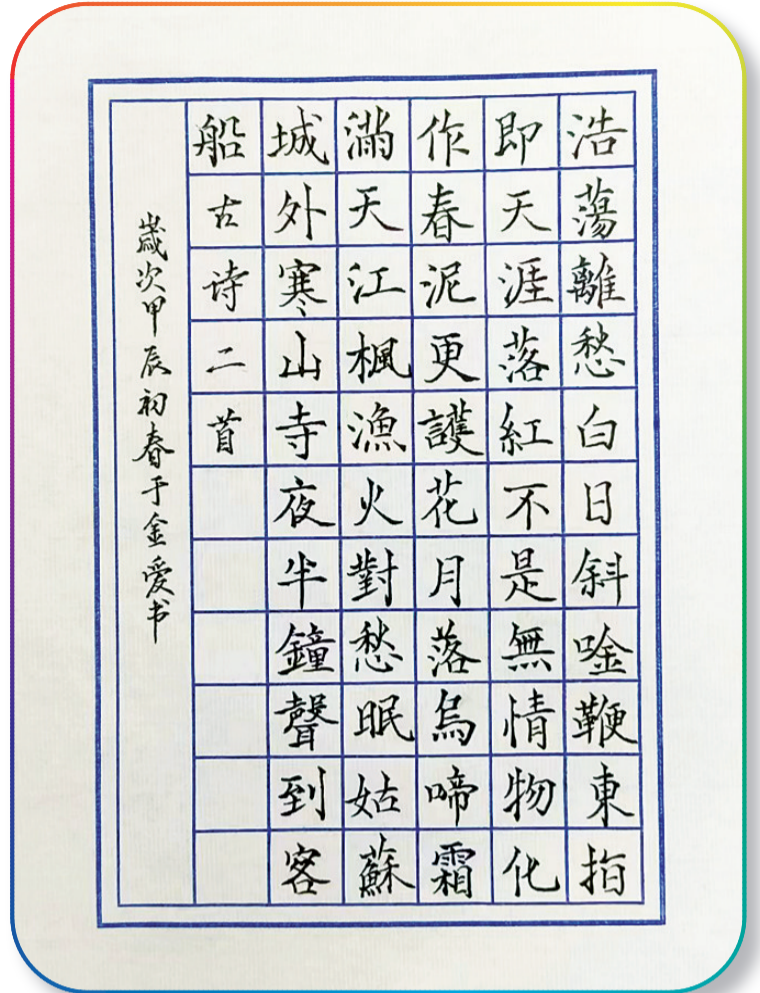 浩蕩離愁白日斜唫鞭東指
即天涯落紅不是無情物化
作春泥更護花月落烏啼霜
滿天江楓漁火對愁眠姑蘇
城外寒山寺夜半鐘聲到客
船古诗二首
歲次甲辰初春于金愛书